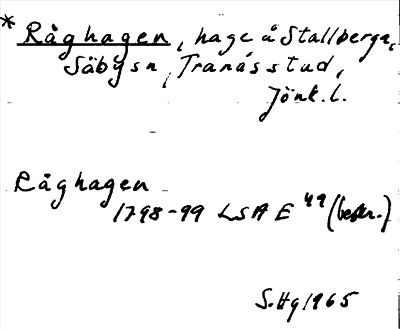 * Råghagen, hage å Stallberga,
Säby sn, Tranås stud,
Jönk. l.
Råghagen
1798-99 LSA E 49 (beskr.)
S.Hg 1965